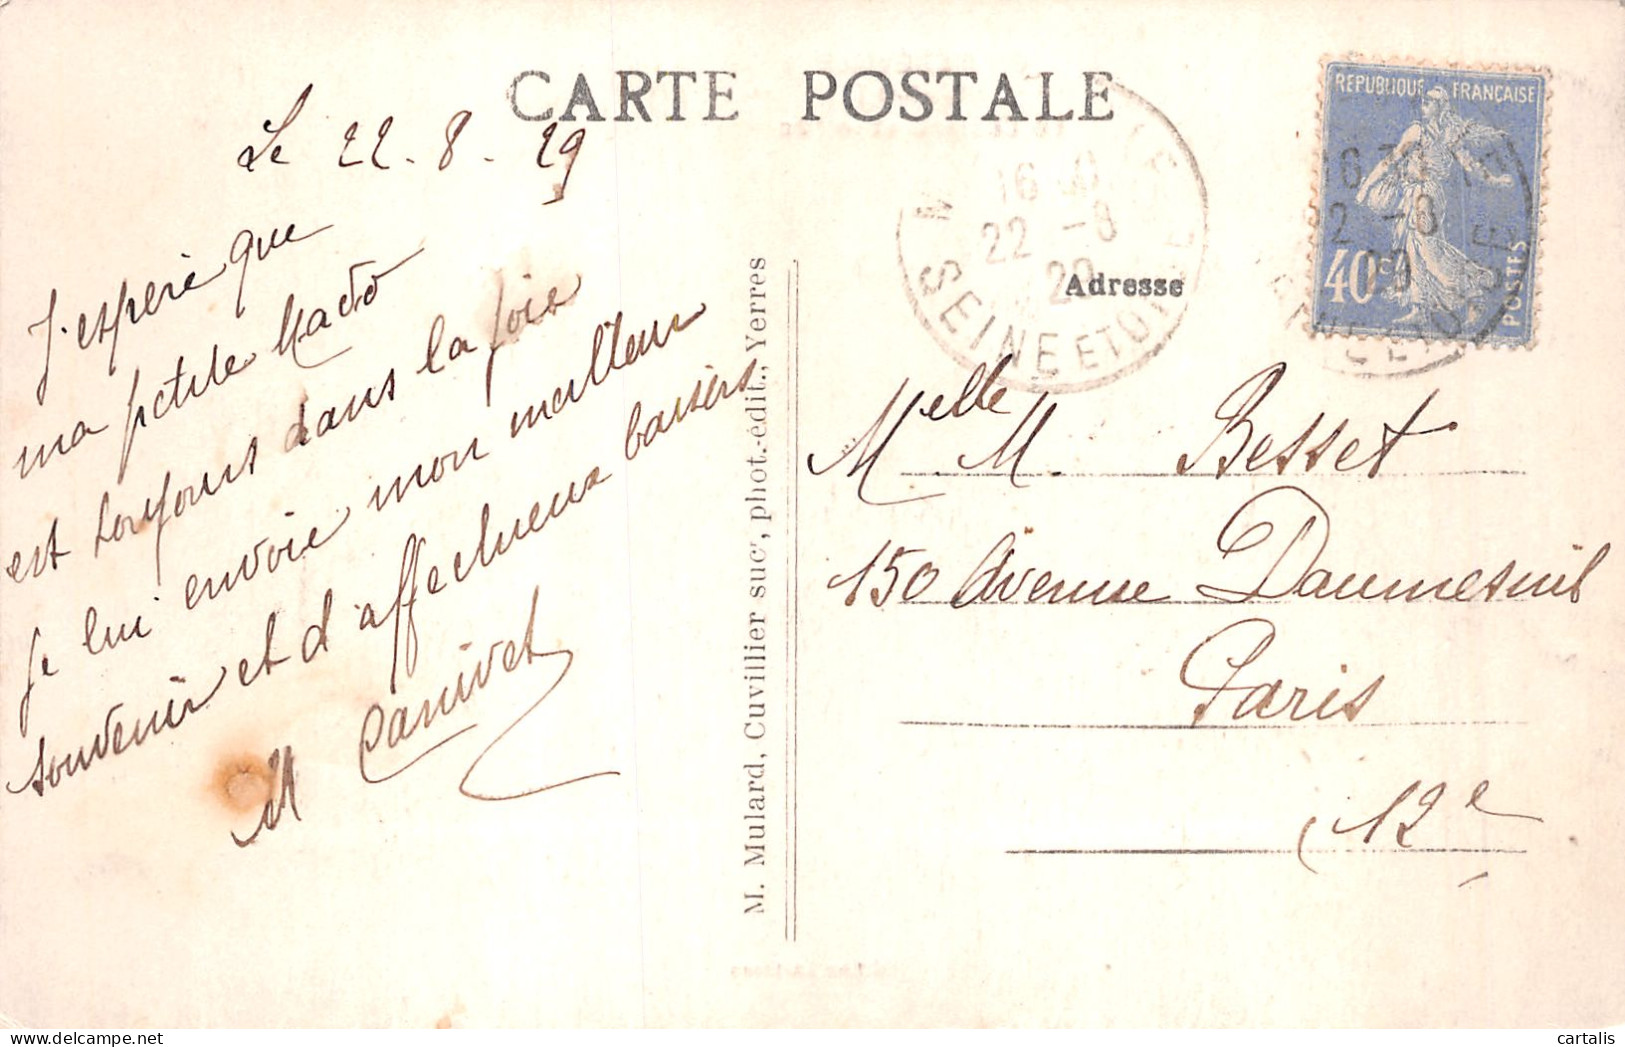 CARTE POSTALE
Le 22. 8. 29
J'espère que
ma petite Mado
est toujours dans la joie
je lui envoie mon meilleur
souvenir et d'affectueux baisers
M Canivet
M. Mulard, Cuvillier suc', phot.-édit., Yerres
REPUBLIQUE FRANÇAISE
40c
POSTES
16
22 -8
SEINE ET OISE
Adresse
Melle M. Besset
150 Avenue Daumesnil
Paris
12e
cartalis